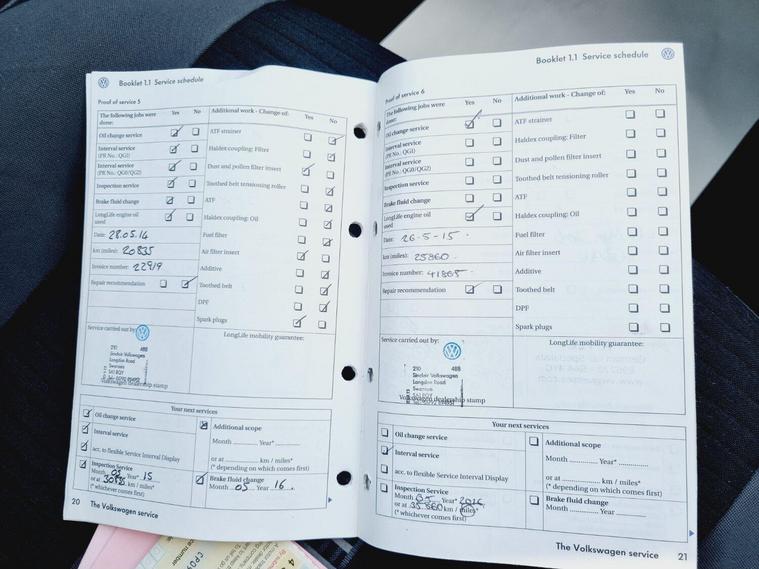 Booklet 1.1 Service schedule
Proof of service 5
The following jobs were done:
Yes No
Additional work - Change of:
Yes No
Oil change service
ATF strainer
Interval service
(PR No.: QG1)
Haldex coupling: Filter
Interval service
(PR No.: QG0/QG2)
Dust and pollen filter insert
Inspection service
Toothed belt tensioning roller
Brake fluid change
ATF
LongLife engine oil used
Haldex coupling: Oil
Date: 28.05.14
Fuel filter
km (miles): 20835
Air filter insert
Invoice number: 22919
Additive
Repair recommendation
Toothed belt
DPF
Spark plugs
Service carried out by:
LongLife mobility guarantee:
210 488
Sinclair Volkswagen
Langdon Road
Swansea
SA1 8QY
Volkswagen dealership stamp
Your next services
Oil change service
Additional scope
Interval service
Month Year*
acc. to flexible Service Interval Display
or at km / miles*
(* depending on which comes first)
Inspection Service
Month 05 Year* 15
or at km / miles*
(* whichever comes first)
Brake fluid change
Month 05 Year 16
20 The Volkswagen service
Booklet 1.1 Service schedule
Proof of service 6
The following jobs were done:
Yes No
Additional work - Change of:
Yes No
Oil change service
ATF strainer
Interval service
(PR No.: QG1)
Haldex coupling: Filter
Interval service
(PR No.: QG0/QG2)
Dust and pollen filter insert
Inspection service
Toothed belt tensioning roller
Brake fluid change
ATF
LongLife engine oil used
Haldex coupling: Oil
Date: 26-5-15
Fuel filter
km (miles): 25860
Air filter insert
Invoice number: 41865
Additive
Repair recommendation
Toothed belt
DPF
Spark plugs
Service carried out by:
LongLife mobility guarantee:
210 488
Sinclair Volkswagen
Langdon Road
Swansea
SA1 8QY
Volkswagen dealership stamp
Your next services
Oil change service
Additional scope
Interval service
Month Year*
acc. to flexible Service Interval Display
or at km / miles*
(* depending on which comes first)
Inspection Service
Month 05 Year* 2016
or at 35.860 km / miles*
(* whichever comes first)
Brake fluid change
Month Year
The Volkswagen service 21